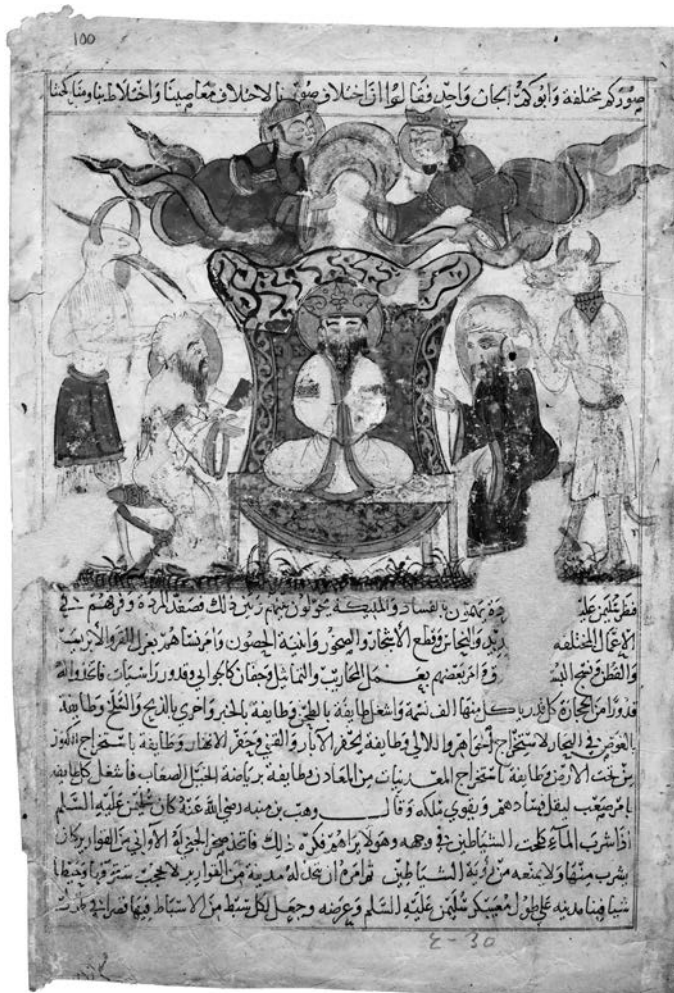 100
صوركم مختلفة وابوكم الجان واحد فقالوا ان اختلاف صورنا لاختلاف معاصينا واختلاطنا ومناكحتنا
فنظر سليمن عليه ردة يهمون بالفساد والمليكة يحولون بينهم وبين ذلك فصفد المردة وفرقهم في
الاعمال المختلفه ديد والنحاس وقطع الاشجار والصخور وابنية الحصون وامر نساهم بغزل القز والابريسم
والقطن ونسج البس وة وامر بعضهم بعمل المحاريب والتماثيل وجفان كالجوابي وقدور راسيات فاتخذوا له
قدورا من الحجارة كل قدر ياكل منها الف نسمة واشغل طايفة بالطحن وطايفة بالخبز واخرى بالذبح والسلخ وطايفة
بالغوص في البحار لاستخراج الجواهر واللالي وطايفة بحفر الابار والقني وحفر الانهار وطايفة باستخراج الكنوز
من تحت الارض وطايفة باستخراج المعدنيات من المعادن وطايفة برياضة الخيل الصعاب فاشغل كل طايفة
بامر صعب ليقل فسادهم ويقوي ملكه وقال وهب بن منبه رضي الله عنه كان سليمن عليه السلم
اذا شرب الماء كلحت الشياطين في وجهه وهو لا يراهم فكره ذلك فاتخذ صخر الجني له الاواني من القوارير كان
يشرب منها ولا يمنعه من رؤية الشياطين ثم امره ان يتخذ له مدينة من القوارير لا تحجب سترة ولا
شيا فبنا مدينه على طول معسكر سليمن عليه السلم وعرضه وجعل لكل سبط من الاسباط فيها قصرا في طول
٤-30